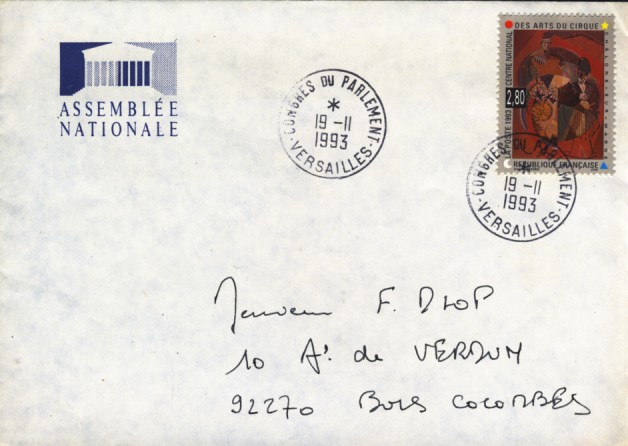 ASSEMBLÉE
NATIONALE
CONGRES DU PARLEMENT
*
19-11
1993
VERSAILLES
DES ARTS DU CIRQUE
CENTRE NATIONAL
LA POSTE 1993
2,80
REPUBLIQUE FRANÇAISE
CONGRES DU PARLEMENT
*
19-11
1993
VERSAILLES
Monsieur F. DLOP
10 Av. de VERDUN
92270 BOIS COLOMBES